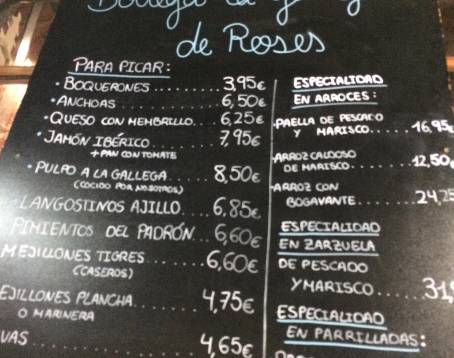 Bodega la
de Roses
PARA PICAR:
· BOQUERONES ........ 3,95€
· ANCHOAS ........ 6,50€
· QUESO CON MEMBRILLO... 6,25€
· JAMÓN IBÉRICO ........ 7,95€
+ PAN CON TOMATE
· PULPO A LA GALLEGA .... 8,50€
(COCIDO POR NOSOTROS)
LANGOSTINOS AJILLO.... 6,85€
PIMIENTOS DEL PADRÓN... 6,60€
MEJILLONES TIGRES ...... 6,60€
(CASEROS)
EJILLONES PLANCHA ....... 4,75€
O MARINERA
UAS ........ 4,65€
ESPECIALIDAD
EN ARROCES:
·PAELLA DE PESCADO
Y MARISCO.... 16,95€
·ARROZ CALDOSO
DE MARISCO...... 12,50€
·ARROZ CON
BOGAVANTE....... 24,25
ESPECIALIDAD
EN ZARZUELA
DE PESCADO
Y MARISCO..... 31,
ESPECIALIDAD
EN PARRILLADAS: